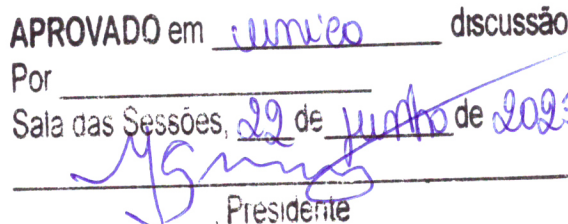 APROVADO em único discussão
Por
Sala das Sessões, 22 de junho de 202
Presidente